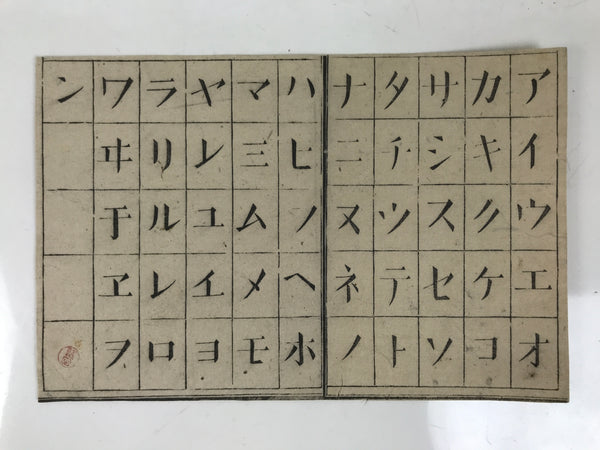 アイウエオ
カキクケコ
サシスセソ
タチツテト
ナニヌネノ
ハヒノヘホ
マミムメモ
ヤレユイヨ
ラリルレロ
ワヰ于ヱヲ
ン